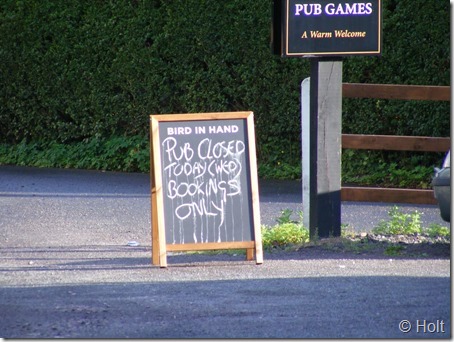 PUB GAMES
A Warm Welcome
BIRD IN HAND
PUB CLOSED
TODAY (WED)
BOOKINGS
ONLY
© Holt